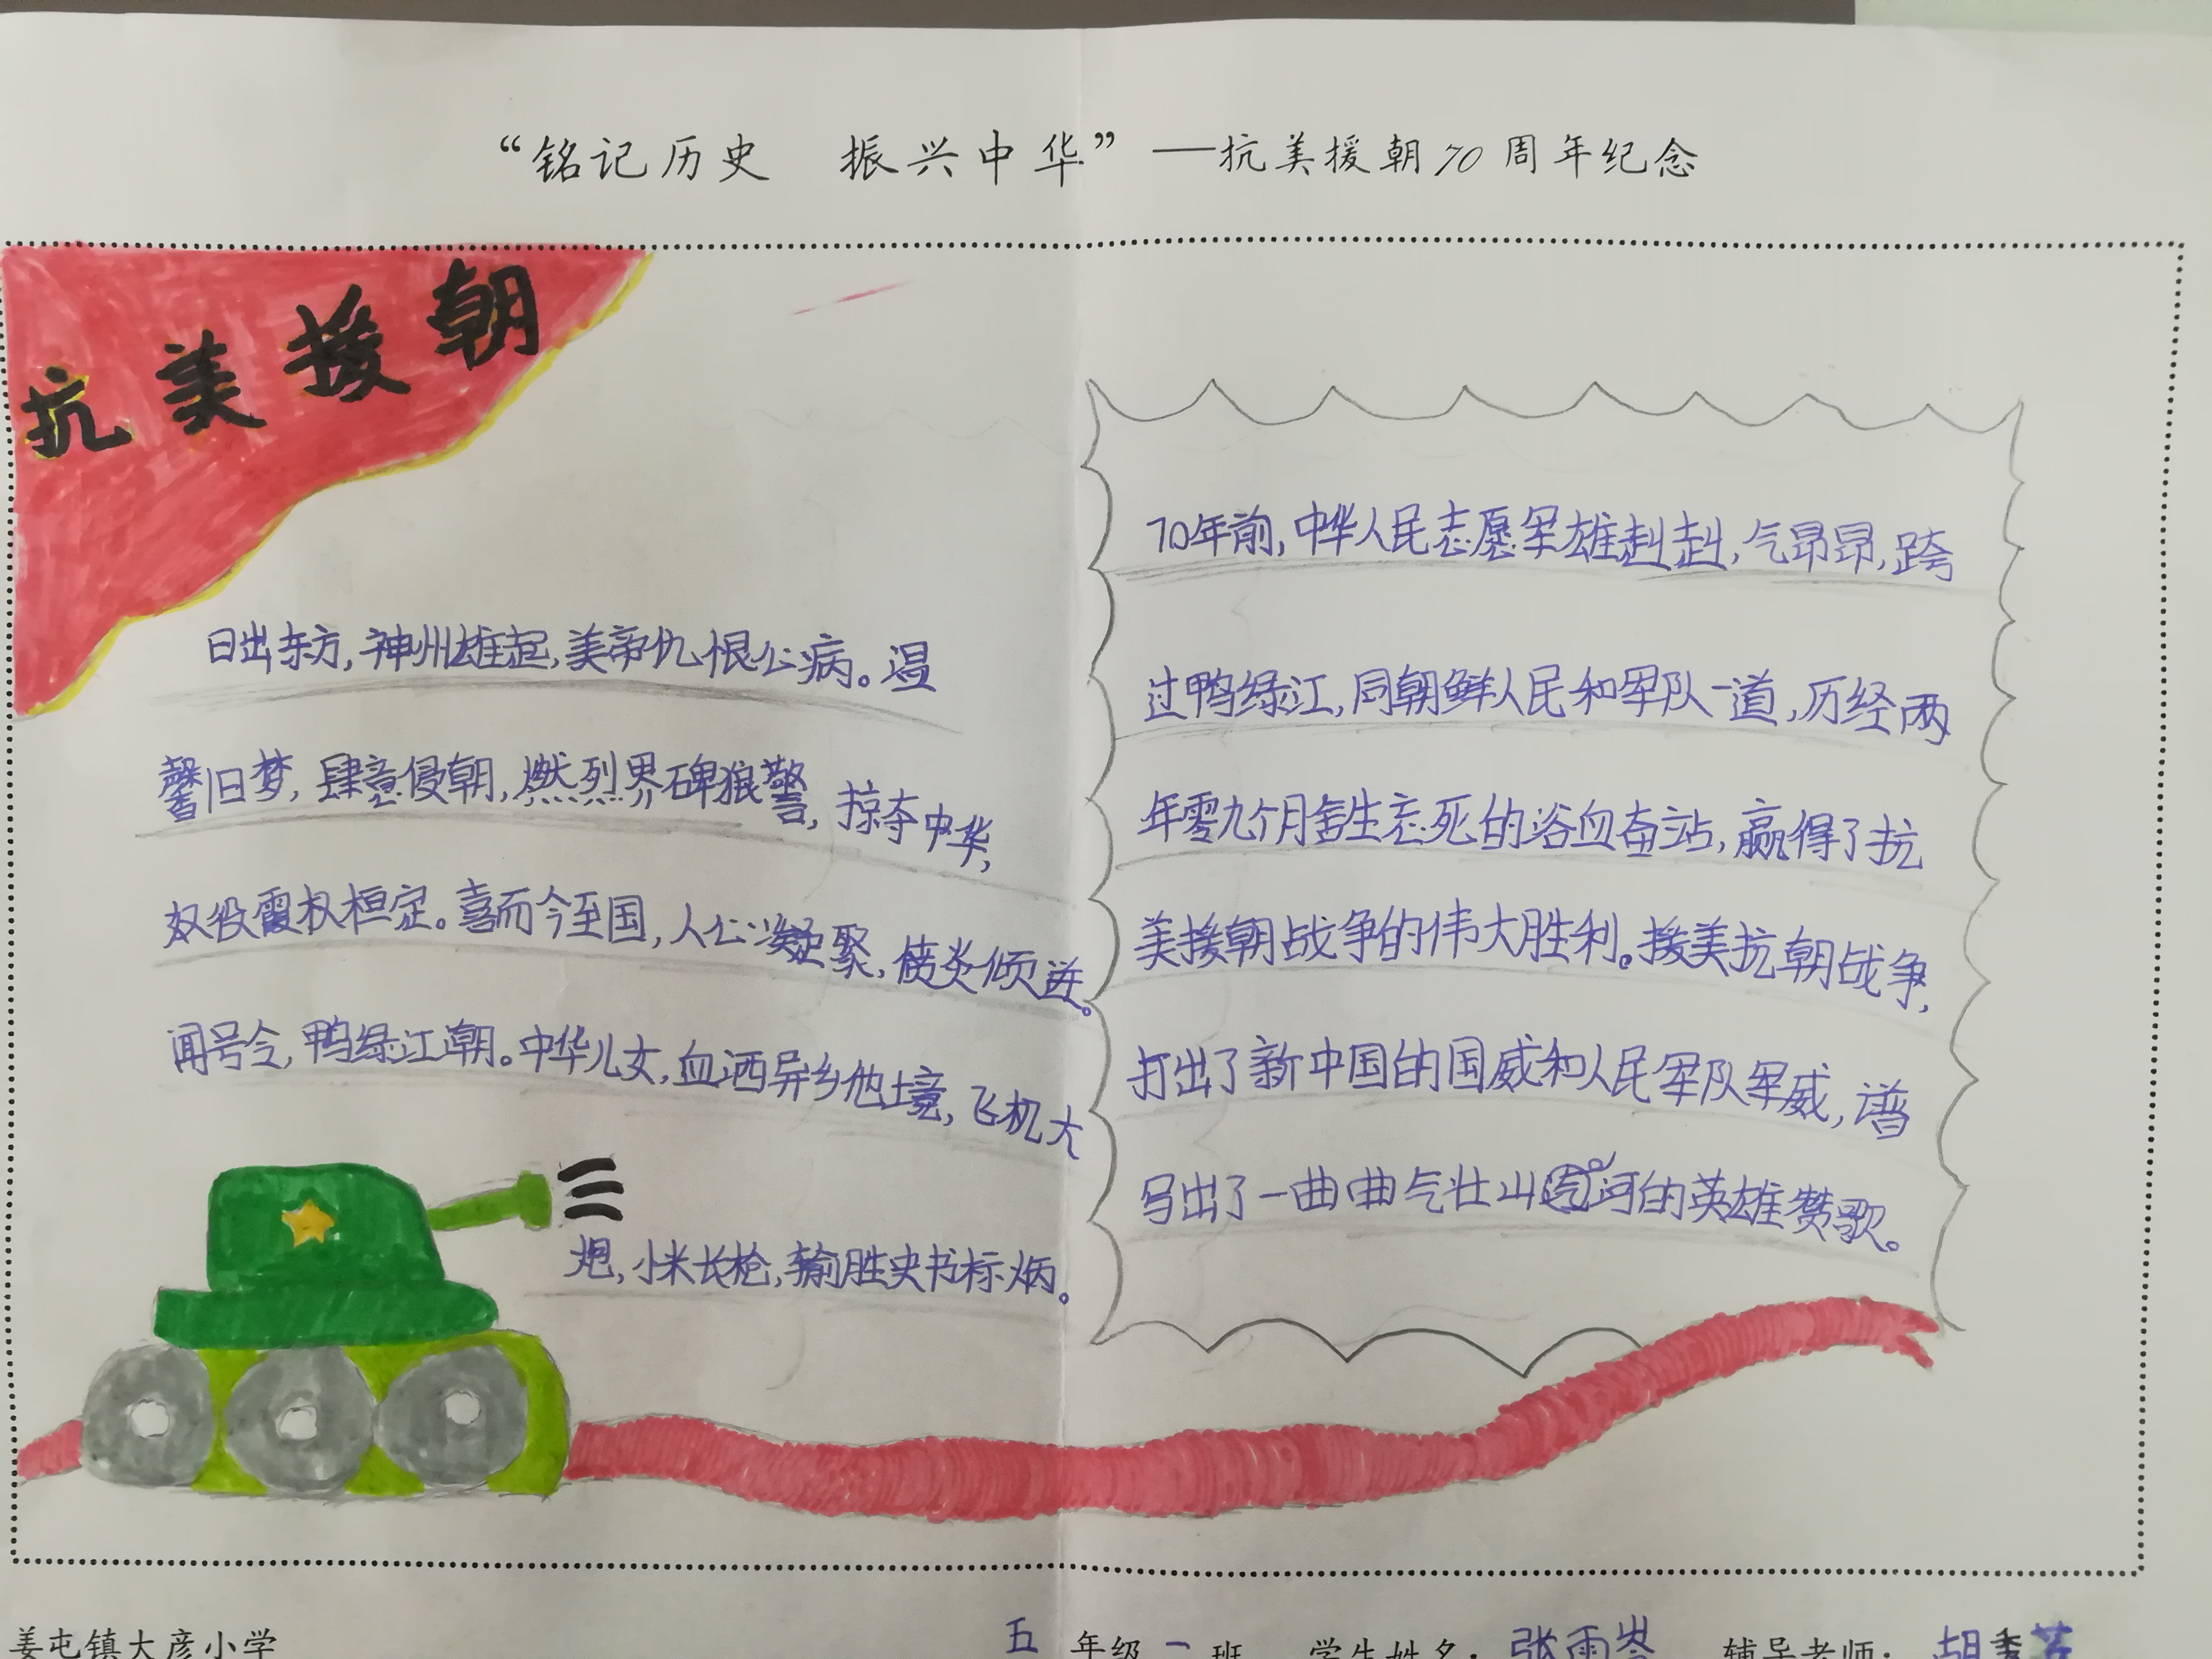 “铭记历史 振兴中华”——抗美援朝70周年纪念
抗美援朝
日出东方，神州雄起，美帝仇恨心病。温
馨旧梦，肆意侵朝，燃烈界碑狼警，掠夺中华，
奴役霞权桓定。喜而今至国，人心凝聚，
闻号令，鸭绿江潮。中华儿女，血洒异乡他境，飞机大
炮，小米长枪，输胜史书标炳。
70年前，中华人民志愿军雄赳赳，气昂昂，跨
过鸭绿江，同朝鲜人民和军队一道，历经两
年零九个月舍生忘死的浴血奋站，赢得了抗
美援朝战争的伟大胜利。援美抗朝战争，
打出了新中国的国威和人民军队军威，谱
写出了一曲曲气壮山河的英雄赞歌。
姜屯镇大彦小学 五年级一班 学生姓名：张雨 辅导老师：胡秀